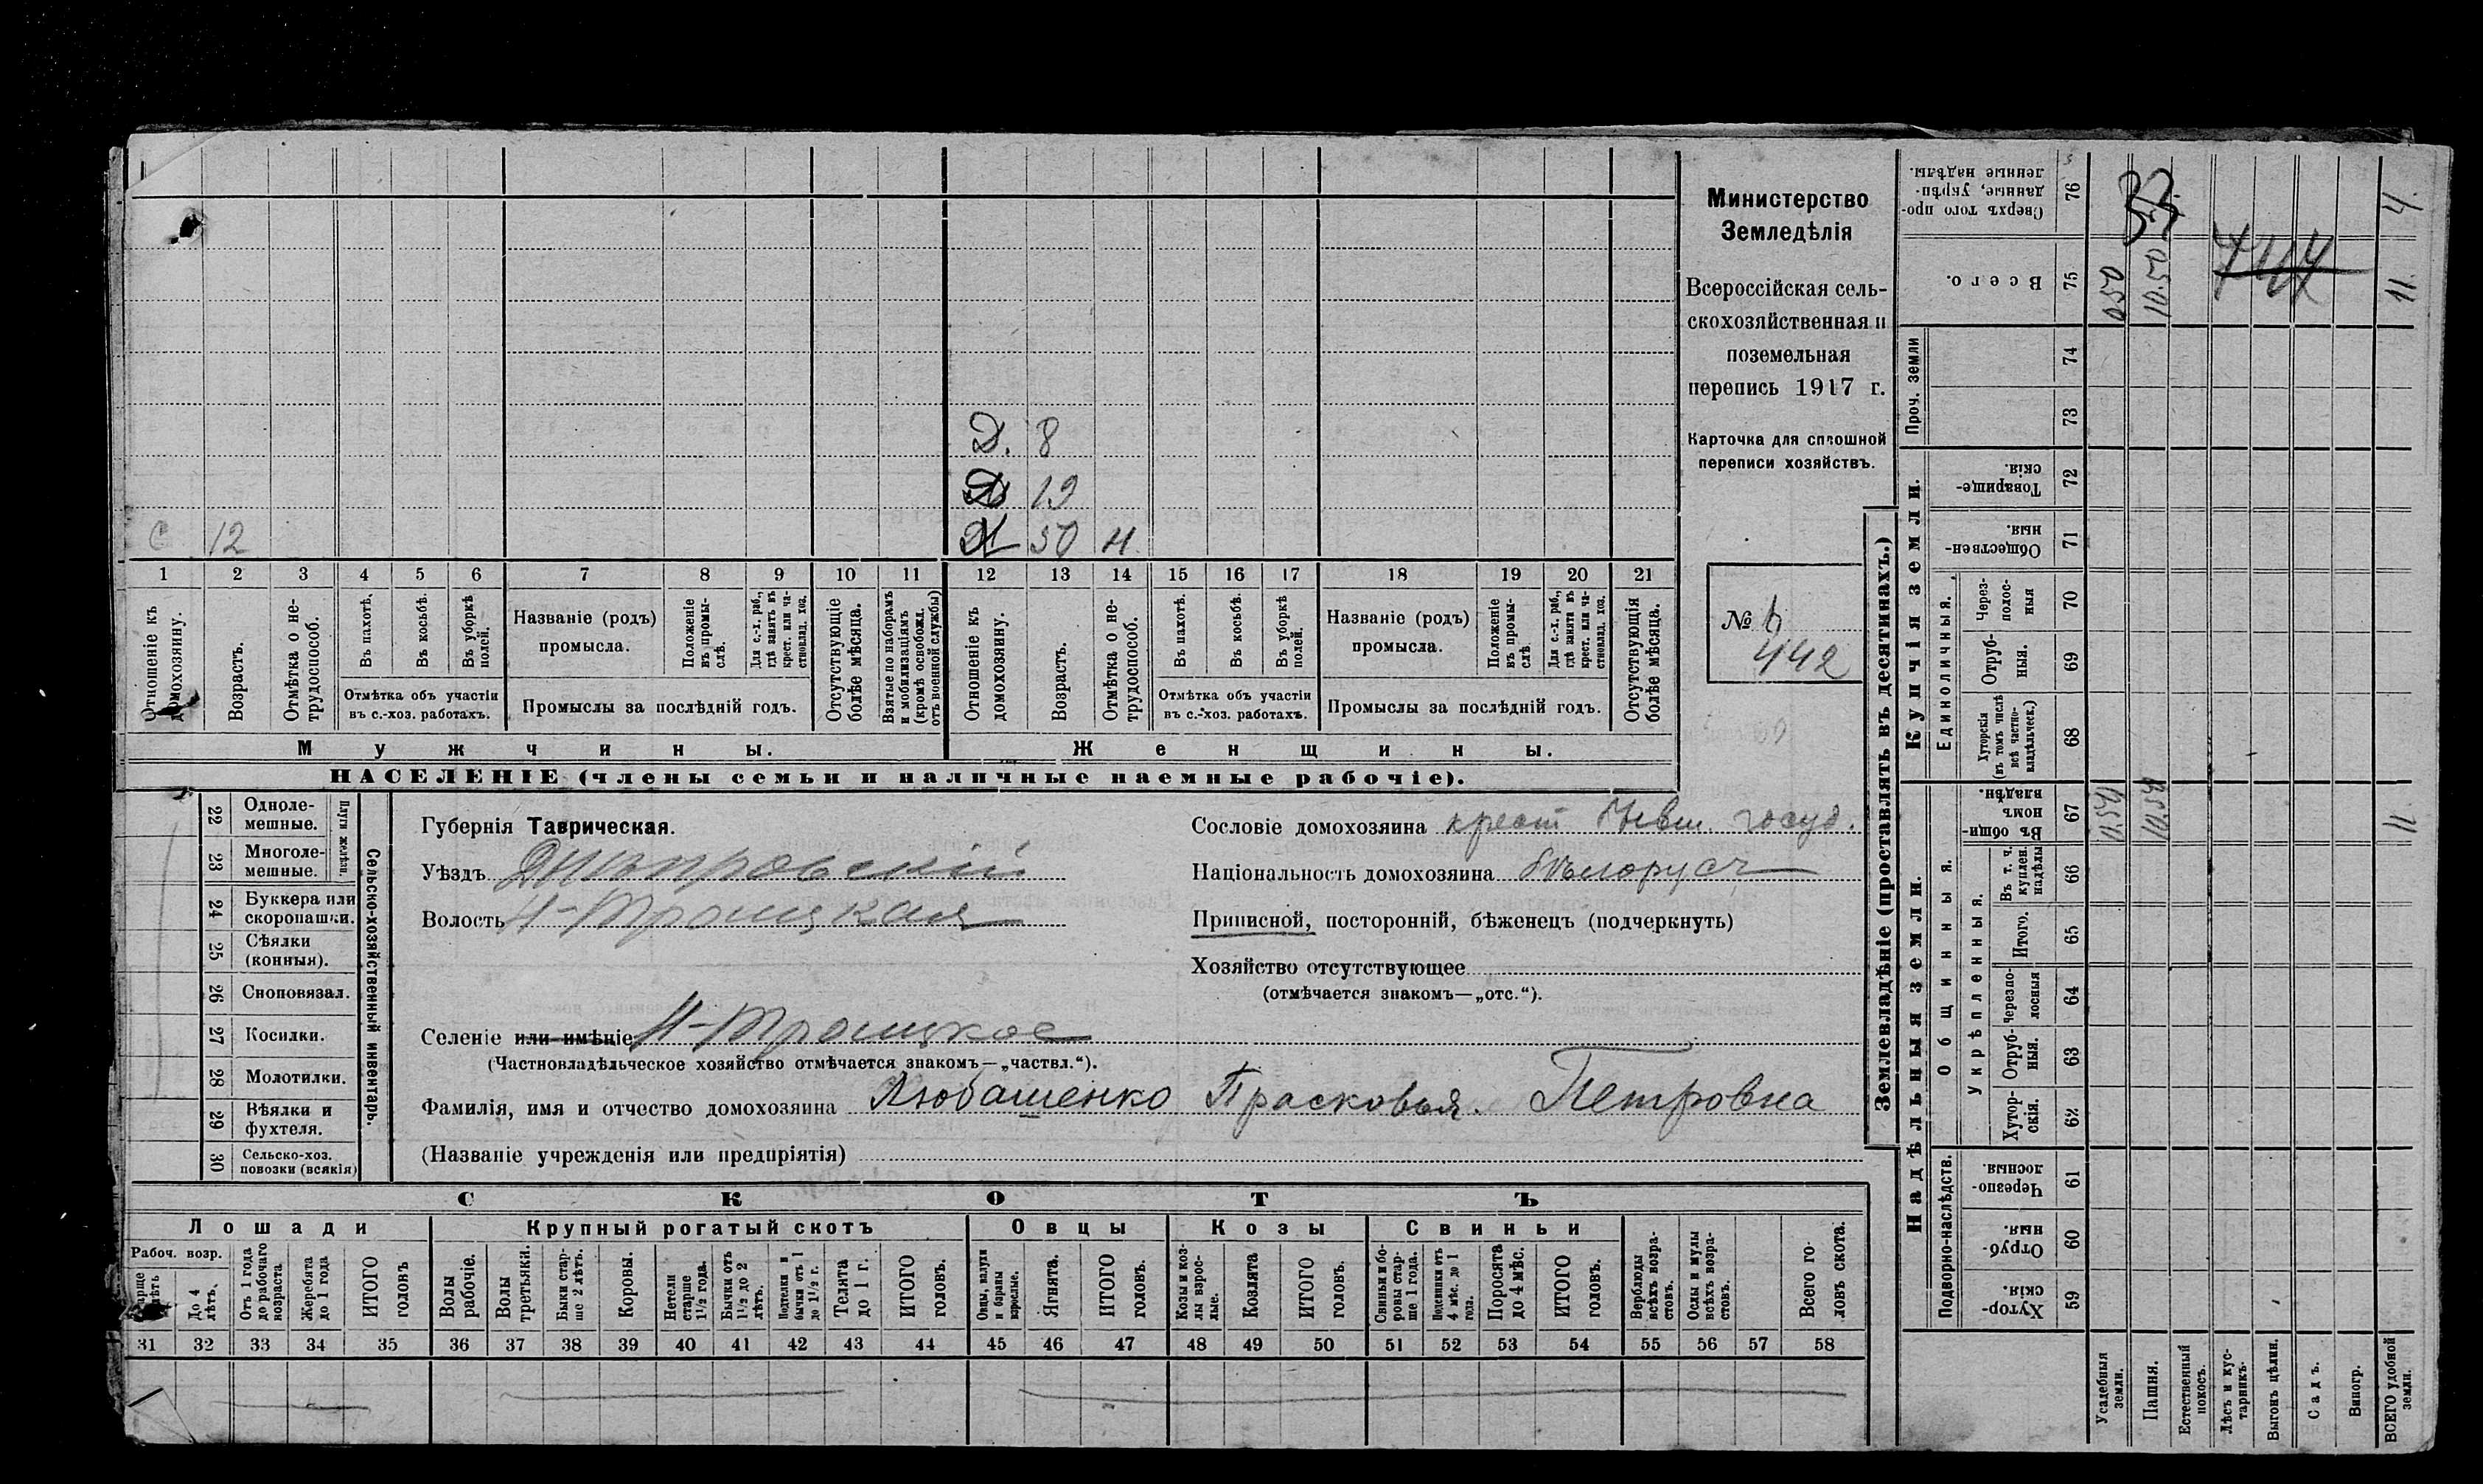 Министерство
Земледѣлія
Всероссійская сель-
скохозяйственная и
поземельная
перепись 1917 г.
Карточка для сплошной
переписи хозяйствъ.
Д. 8
Д 19
50 н.
С 12
1 2 3 4 5 6 7 8 9 10 11 12 13 14 15 16 17 18 19 20 21
Отношеніе къ домохозяину.
Возрастъ.
Отмѣтка о не-трудоспособ.
Въ пахотѣ.
Въ косьбѣ.
Въ уборкѣ полей.
Отмѣтка объ участіи
въ с.-хоз. работахъ.
Названіе (родъ)
промысла.
Положеніе въ промы-слѣ.
Для с.-х. раб., гдѣ занятъ въ крест. или ча-стновлад. хоз.
Промыслы за послѣдній годъ.
Отсутствующіе болѣе мѣсяца.
Взятые по наборамъ и мобилизаціямъ (кромѣ освобожд. отъ военной службы)
Отношеніе къ домохозяину.
Возрастъ.
Отмѣтка о не-трудоспособ.
Въ пахотѣ.
Въ косьбѣ.
Въ уборкѣ полей.
Отмѣтка объ участіи
въ с.-хоз. работахъ.
Названіе (родъ)
промысла.
Положеніе въ промы-слѣ
Для с.-х. раб., гдѣ занята въ крест. или ча-стновлад. хоз.
Промыслы за послѣдній годъ.
Отсутствующія болѣе мѣсяца.
Мужчины.
Женщины.
НАСЕЛЕНІЕ (члены семьи и наличные наемные рабочіе).
№
442
22 Одноле-мешные.
23 Многоле-мешные.
Плуги желѣзн.
24 Буккера или скоропашки.
25 Сѣялки (конныя).
26 Сноповязал.
27 Косилки.
28 Молотилки.
29 Вѣялки и фухтеля.
30 Сельско-хоз. повозки (всякія)
Сельско-хозяйственный инвентарь.
Губернія Таврическая.
Уѣздъ Днѣпровскій
Волость Н-Троицкая
Селеніе или имѣніе Н-Троицкое
(Частновладѣльческое хозяйство отмѣчается знакомъ—„частвл.“).
Сословіе домохозяина крест бывш. госуд.
Національность домохозяина бѣлорусъ
Приписной, посторонній, бѣженецъ (подчеркнуть)
Хозяйство отсутствующее
(отмѣчается знакомъ—„отс.“).
Фамилія, имя и отчество домохозяина Любашенко Прасковья. Петровна
(Названіе учрежденія или предпріятія)
СКОТЪ
Лошади
Крупный рогатый скотъ
Овцы
Козы
Свиньи
Рабоч. возр.
До 4 лѣтъ.
Отъ 1 года до рабочаго возраста
Жеребята до 1 года
ИТОГО головъ
Волы рабочіе.
Волы третьяки.
Быки стар-ше 2 лѣтъ.
Коровы.
Нетели старше 1½ года.
Бычки отъ 1½ до 2 лѣтъ.
Подтелки и бычки отъ 1 до 1½ г.
Телята до 1 г.
ИТОГО головъ.
Овцы, валухи и бараны взрослые.
Ягнята.
ИТОГО головъ.
Козы и коз-лы взрос-лые.
Козлята
ИТОГО головъ.
Свиньи и бо-ровы стар-ше 1 года.
Подсвинки отъ 4 мѣс. до 1 года.
Поросята до 4 мѣс.
ИТОГО головъ.
Верблюды всѣхъ возра-стовъ.
Ослы и мулы всѣхъ возра-стовъ.
Всего го-ловъ скота.
31 32 33 34 35 36 37 38 39 40 41 42 43 44 45 46 47 48 49 50 51 52 53 54 55 56 57 58
Землевладѣніе (проставлять въ десятинахъ.)
Надѣльныя земли.
Купчія земли.
Проч. земли
Подворно-наслѣдств.
Общинныя.
Укрѣпленныя.
Единоличныя.
Хутор-скія. 59
Отруб-ныя. 60
Черезпо-лосныя. 61
Хутор-скія. 62
Отруб-ныя. 63
Черезпо-лосныя 64
Итого. 65
Въ т. ч. куплен. надѣлы 66
Въ общи-номъ владѣн. 67
Хуторскія (въ томъ числѣ всѣ частно-владѣльческ.) 68
Отруб-ныя. 69
Через-полос-ныя 70
Обществен-ныя. 71
Товарище-скія. 72
73
74
Всего. 75
Сверхъ того про-данные, укрѣп-ленные надѣлы. 76
Усадебныя земли.
Пашня.
Естественный покосъ.
Лѣсъ и кус-тарникъ.
Выгонъ цѣлин.
Садъ.
Виногр.
ВСЕГО удобной земли.
10.50
050
10.50
11
11.
4.
33